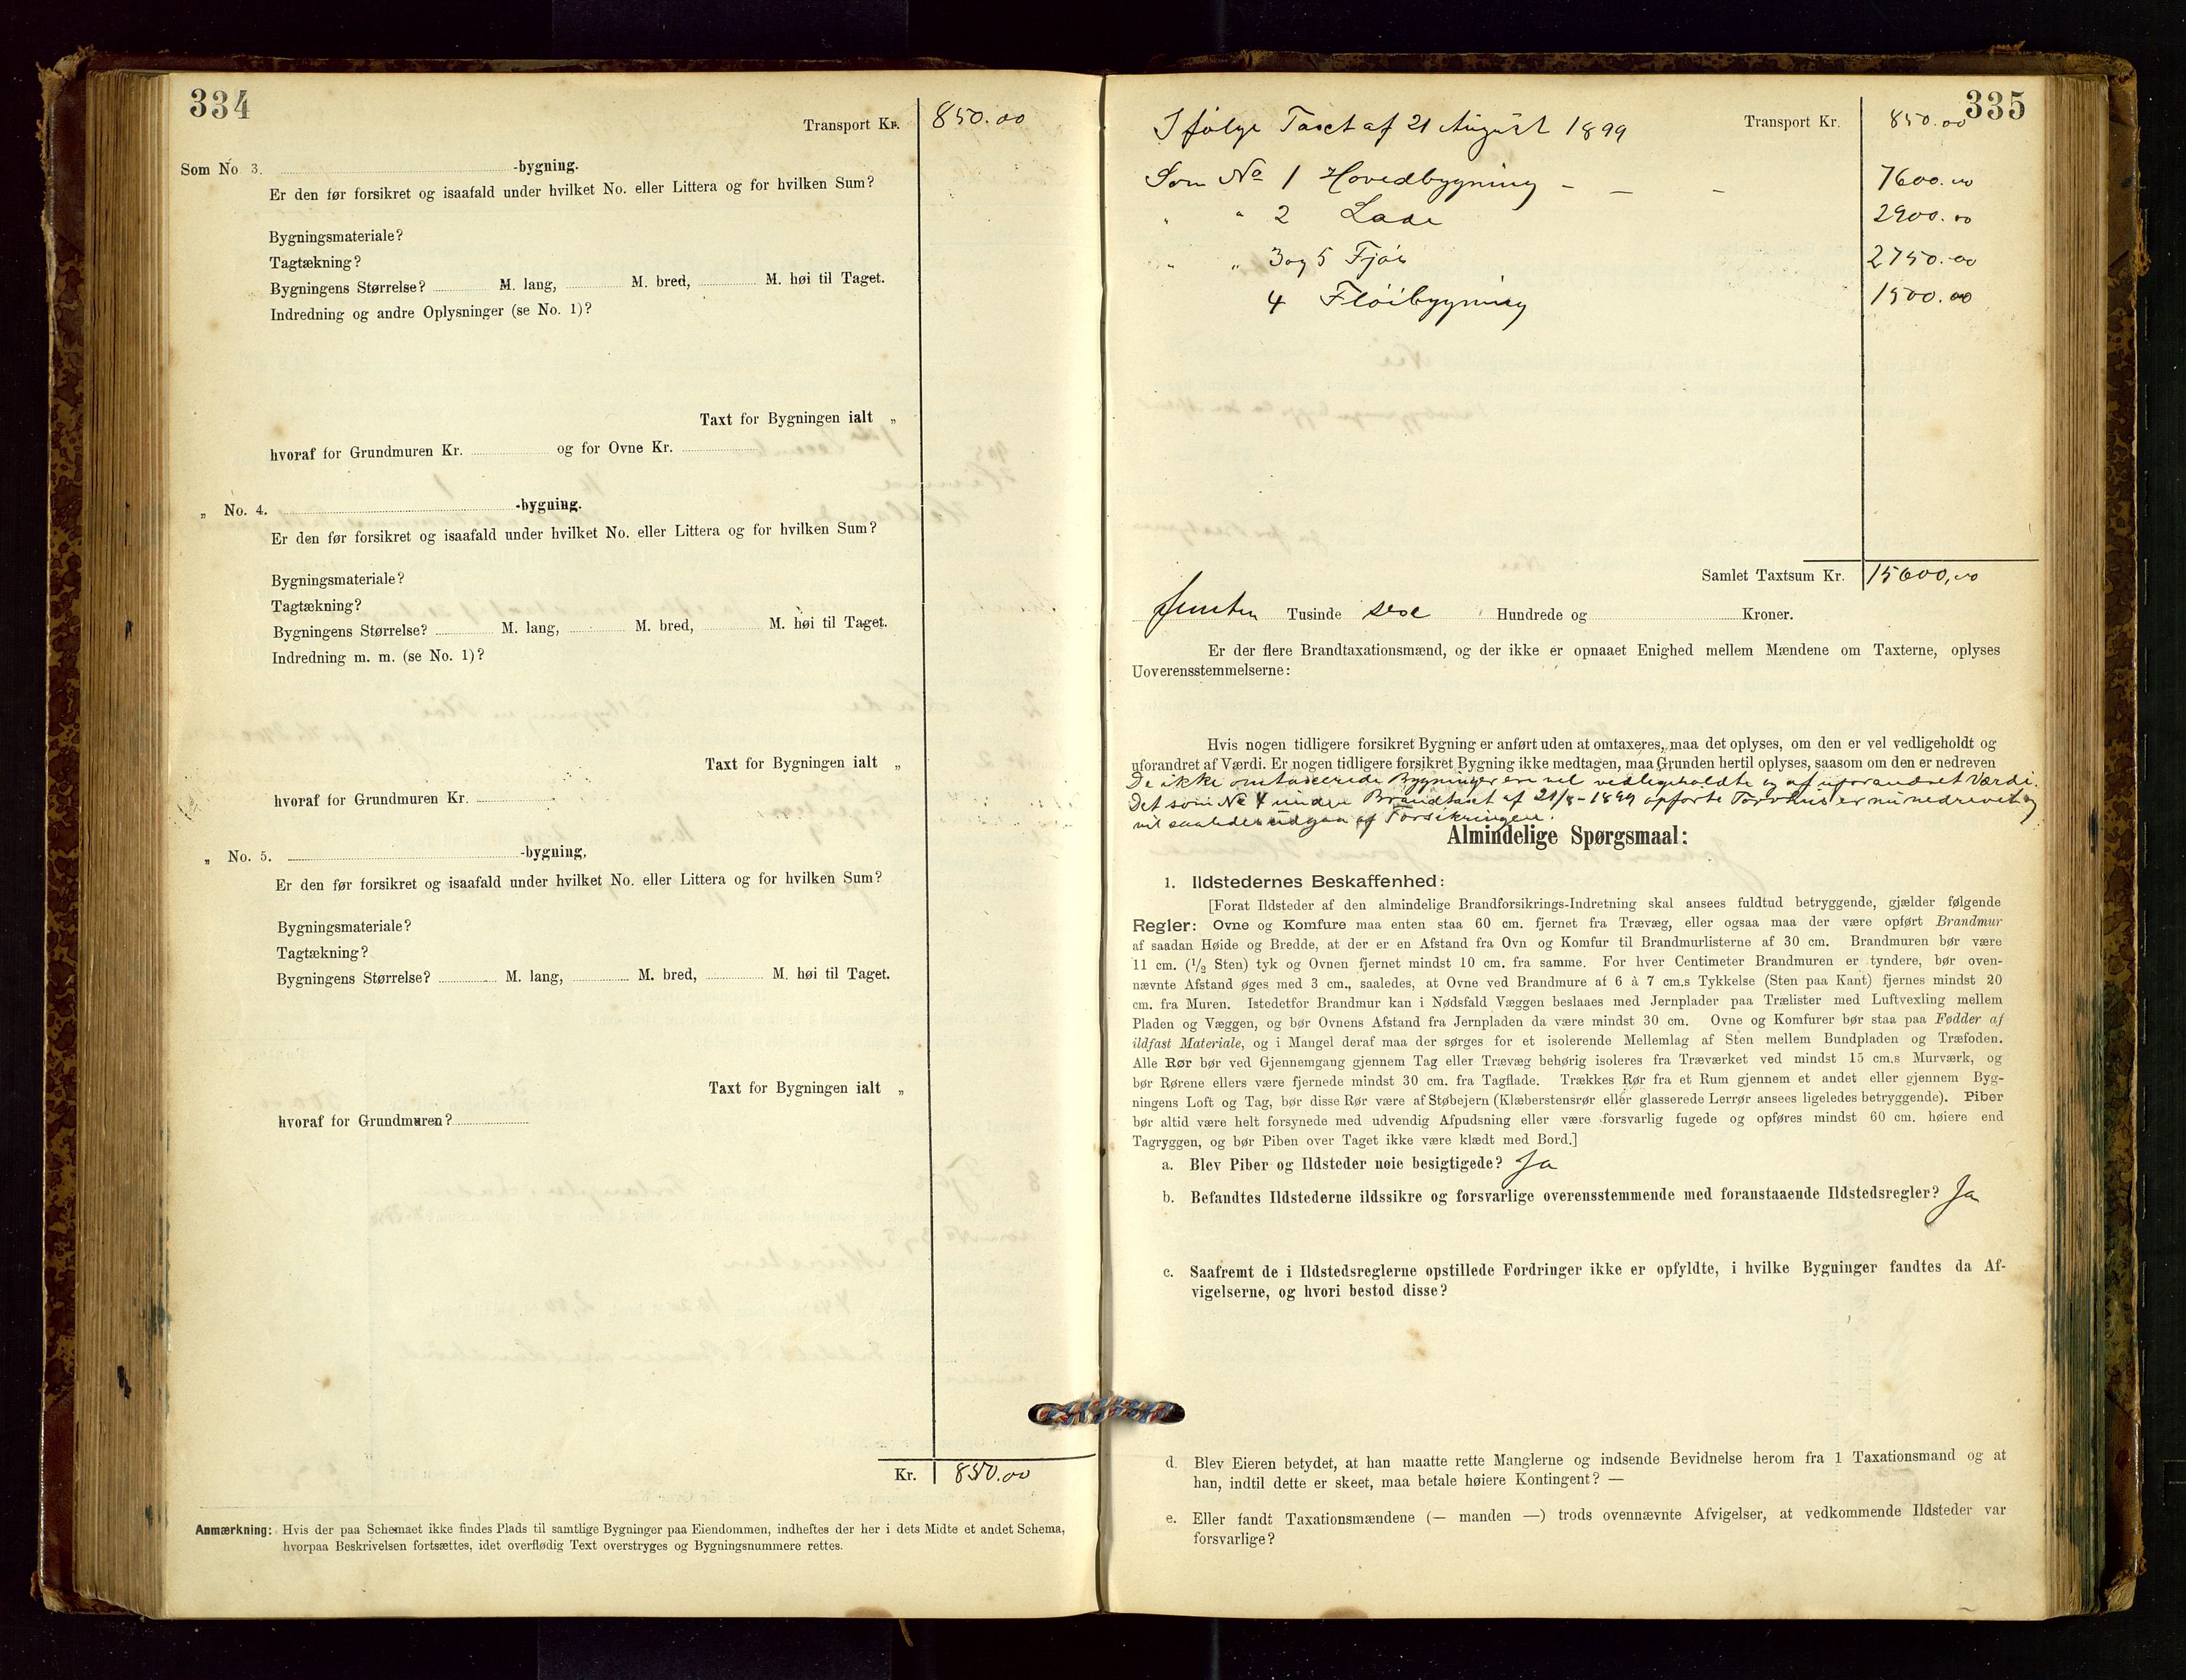 334
Transport Kr. 850.00
Som No 3. -bygning.
Er den før forsikret og isaafald under hvilket No. eller Littera og for hvilken Sum?
Bygningsmateriale?
Tagtækning?
Bygningens Størrelse? M. lang, M. bred, M. høi til Taget.
Indredning og andre Oplysninger (se No. 1)?
Taxt for Bygningen ialt „
hvoraf for Grundmuren Kr. og for Ovne Kr.
„ No. 4. -bygning.
Er den før forsikret og isaafald under hvilket No. eller Littera og for hvilken Sum?
Bygningsmateriale?
Tagtækning?
Bygningens Størrelse? M. lang, M. bred, M. høi til Taget.
Indredning m. m. (se No. 1)?
Taxt for Bygningen ialt „
hvoraf for Grundmuren Kr.
„ No. 5. -bygning,
Er den før forsikret og isaafald under hvilket No. eller Littera og for hvilken Sum?
Bygningsmateriale?
Tagtækning?
Bygningens Størrelse? M. lang, M. bred, M. høi til Taget.
Taxt for Bygningen ialt „
hvoraf for Grundmuren?
Kr. 850.00
Anmærkning: Hvis der paa Schemaet ikke findes Plads til samtlige Bygninger paa Eiendommen, indheftes der her i dets Midte et andet Schema,
hvorpaa Beskrivelsen fortsættes, idet overflødig Text overstryges og Bygningsnummere rettes.
335
Ifølge Taxt af 21 August 1899 Transport Kr. 850.00
Som No 1 Hovedbygning - - - 7600.00
" " 2 Lade 2900.00
" " 3 og 5 Fjøs 2750.00
4 Fløibygning 1500.00
Samlet Taxtsum Kr. 15600,00
Femten Tusinde sex Hundrede og Kroner.
Er der flere Brandtaxationsmænd, og der ikke er opnaaet Enighed mellem Mændene om Taxterne, oplyses
Uoverensstemmelserne:
Hvis nogen tidligere forsikret Bygning er anført uden at omtaxeres, maa det oplyses, om den er vel vedligeholdt og
uforandret af Værdi. Er nogen tidligere forsikret Bygning ikke medtagen, maa Grunden hertil oplyses, saasom om den er nedreven
De ikke omtaxerede Bygninger ere vel vedligeholdte og af uforandret Værdi.
Det som No 4 under Brandtaxt af 21/8-1899 opførte Torvhus er nu nedrevet og
vil saaledes udgaa af Forsikringen.
Almindelige Spørgsmaal:
1. Ildstedernes Beskaffenhed:
[Forat Ildsteder af den almindelige Brandforsikrings-Indretning skal ansees fuldtud betryggende, gjælder følgende
Regler: Ovne og Komfure maa enten staa 60 cm. fjernet fra Trævæg, eller ogsaa maa der være opført Brandmur
af saadan Høide og Bredde, at der er en Afstand fra Ovn og Komfur til Brandmurlisterne af 30 cm. Brandmuren bør være
11 cm. (1/2 Sten) tyk og Ovnen fjernet mindst 10 cm. fra samme. For hver Centimeter Brandmuren er tyndere, bør oven-
nævnte Afstand øges med 3 cm., saaledes, at Ovne ved Brandmure af 6 à 7 cm.s Tykkelse (Sten paa Kant) fjernes mindst 20
cm. fra Muren. Istedetfor Brandmur kan i Nødsfald Væggen beslaaes med Jernplader paa Trælister med Luftvexling mellem
Pladen og Væggen, og bør Ovnens Afstand fra Jernpladen da være mindst 30 cm. Ovne og Komfurer bør staa paa Fødder af
ildfast Materiale, og i Mangel deraf maa der sørges for et isolerende Mellemlag af Sten mellem Bundpladen og Træfoden.
Alle Rør bør ved Gjennemgang gjennem Tag eller Trævæg behørig isoleres fra Træværket ved mindst 15 cm.s Murværk, og
bør Rørene ellers være fjernede mindst 30 cm. fra Tagflade. Trækkes Rør fra et Rum gjennem et andet eller gjennem Byg-
ningens Loft og Tag, bør disse Rør være af Støbejern (Klæberstensrør eller glasserede Lerrør ansees ligeledes betryggende). Piber
bør altid være helt forsynede med udvendig Afpudsning eller være forsvarlig fugede og opføres mindst 60 cm. høiere end
Tagryggen, og bør Piben over Taget ikke være klædt med Bord.]
a. Blev Piber og Ildsteder nøie besigtigede? Ja
b. Befandtes Ildstederne ildssikre og forsvarlige overensstemmende med foranstaaende Ildstedsregler? Ja
c. Saafremt de i Ildstedsreglerne opstillede Fordringer ikke er opfyldte, i hvilke Bygninger fandtes da Af-
vigelserne, og hvori bestod disse?
d. Blev Eieren betydet, at han maatte rette Manglerne og indsende Bevidnelse herom fra 1 Taxationsmand og at
han, indtil dette er skeet, maa betale høiere Kontingent? —
e. Eller fandt Taxationsmændene (— manden —) trods ovennævnte Afvigelser, at vedkommende Ildsteder var
forsvarlige?